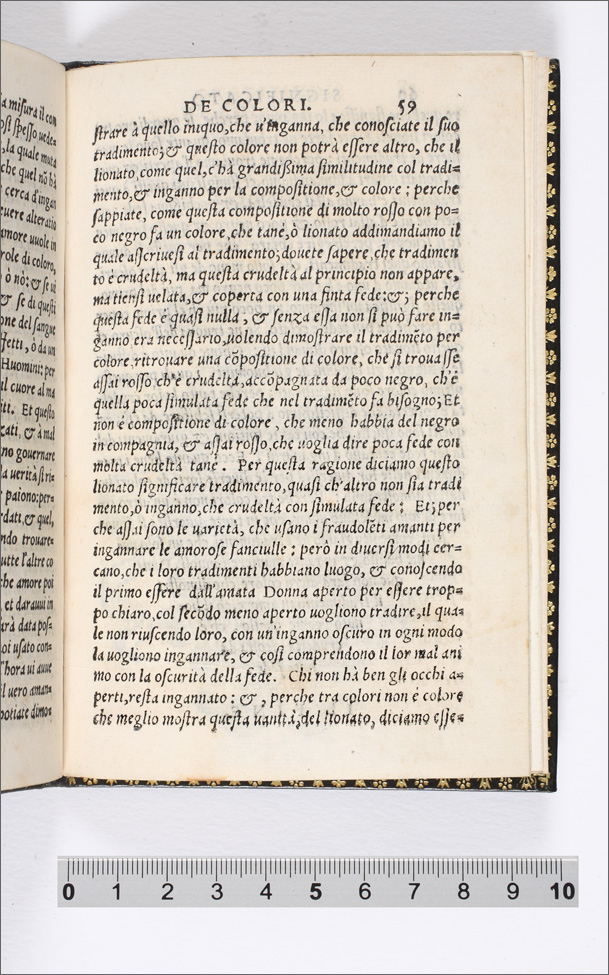 a misura il con
osi spesso uede-
, la quale muta
che quel nõ hà
cerca d'ingan
uere alteratio
amore uuole in
role di coloro,
ò nò: & se ui
& se di questi
one del sangue
fetti, ò da un
Huomini: per
il cuore al ma
iti. Et questo
zati, & a mal
no gouernare
la uerità stri-
paiono: per-
dati, & quel,
ndo trouare-
utte l'altre co
he amore poi
, et daraui in
arà data pos-
oi usato con-
l'hora ui auue
il uero aman-
potiate dimo-
DE COLORI. 59
strare à quello iniquo, che u'inganna, che conosciate il suo
tradimento; & questo colore non potrà essere altro, che il
lionato, come quel, c'hà grandissima similitudine col tradi=
mento, & inganno per la compositione, & colore ; perche
sappiate, come questa compositione di molto rosso con po=
co negro fa un colore, che tanè, ò lionato addimandiamo il
quale asscriuesi al tradimento; douete sapere, che tradimen
to è crudeltà, ma questa crudeltà al principio non appare,
ma tiensi uelata, & coperta con una finta fede: &; perche
questa fede è quasi nulla, & senza essa non si può fare in=
ganno era necessario, uolendo dimostrare il tradimẽto per
colore, ritrouare una cõpositione di colore, che si trouasse
assai rosso ch'è crudeltà, accõpagnata da poco negro, ch'è
quella poca simulata fede che nel tradimẽto fa bisogno; Et
non è compositione di colore, che meno habbia del negro
in compagnia, & assai rosso, che uoglia dire poca fede con
molta crudeltà tanè. Per questa ragione diciamo questo
lionato significare tradimento, quasi ch'altro non sia tradi
mento, ò inganno, che crudeltà con simulata fede ; Et; per
che assai sono le uarietà, che usano i fraudolẽti amanti per
ingannare le amorose fanciulle : però in diuersi modi cer=
cano, che i loro tradimenti habbiano luogo, & conoscendo
il primo essere dall'amata Donna aperto per essere trop=
po chiaro, col secõdo meno aperto uogliono tradire, il qua=
le non riuscendo loro, con un'inganno oscuro in ogni modo
la uogliono ingannare, & così comprendono il lor mal ani
mo con la oscurità della fede. Chi non hà ben gli occhi a=
perti, resta ingannato : &, perche tra colori non è colore
che meglio mostra questa uanità, del lionato, diciamo esse=
0 1 2 3 4 5 6 7 8 9 10